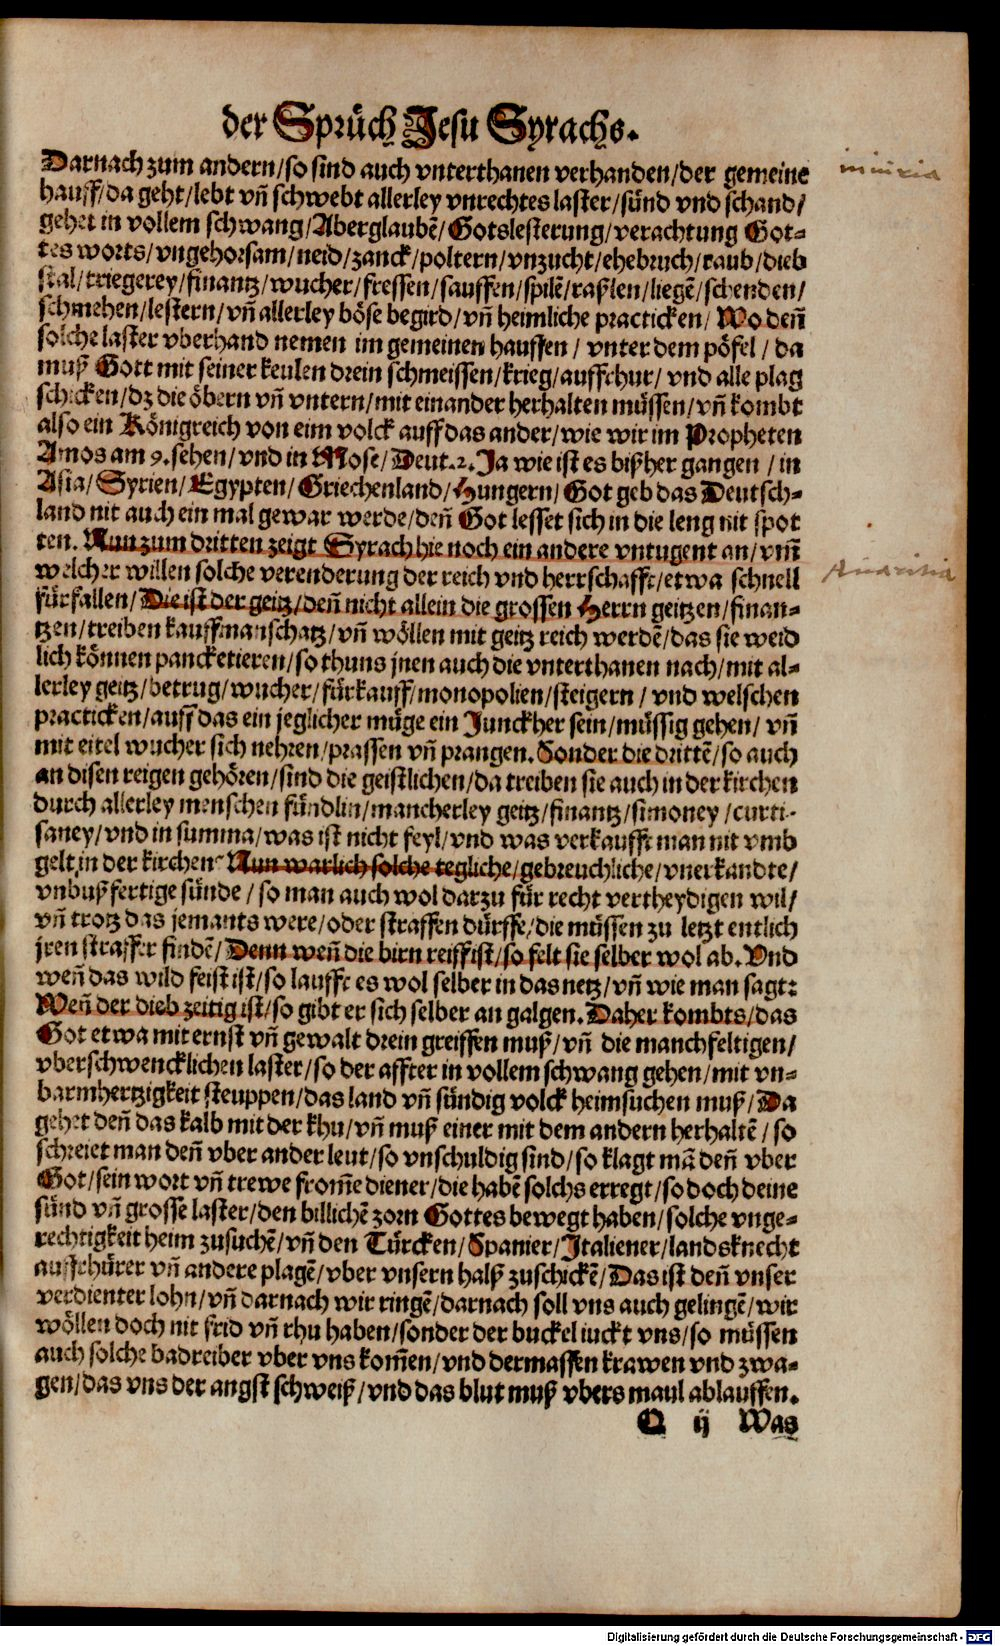 der Sprüch Jesu Syrachs.
Darnach zum andern/so sind auch vnterthanen verhanden/der gemeine
iniuria
hauff/da geht/lebt vñ schwebt allerley vnrechtes laster/sünd vnd schand/
gehet in vollem schwang/Aberglaubē/Gotslesterung/verachtung Got-
tes worts/vngehorsam/neid/zanck/poltern/vnzucht/ehebruch/raub/dieb
stal/triegerey/finantz/wucher/fressen/sauffen/spilē/raßlen/liegē/schenden/
schmehen/lestern/vñ allerley böse begird/vñ heimliche practicken/Wo deñ
solche laster vberhand nemen im gemeinen hauffen/vnter dem pöfel/da
muß Gott mit seiner keulen drein schmeissen/krieg/auffrhur/vnd alle plag
schicken/dz die öbern vñ vntern/mit einander herhalten müssen/vñ kombt
also ein Königreich von eim volck auff das ander/wie wir im Propheten
Amos am 9.sehen/vnd in Mose/Deut.2.Ja wie ist es bißher gangen/in
Asia/Syrien/Egypten/Griechenland/Hungern/Got geb das Deutsch-
land nit auch ein mal gewar werde/deñ Got lesset sich in die leng nit spot
ten. Nun zum dritten zeigt Syrach hie noch ein andere vntugent an/vmm̄
welcher willen solche verenderung der reich vnd herrschafft/etwa schnell
Auaritia
fürfallen/Die ist der geitz/deñ nicht allein die grossen Herrn geitzen/finan-
tzen/treiben kauffmanschatz/vñ wöllen mit geitz reich werdē/das sie weid
lich können pancketieren/so thuns jnen auch die vnterthanen nach/mit al-
lerley geitz/betrug/wucher/fürkauff/monopolien/steigern/vnd welschen
practicken/auff das ein jeglicher müge ein Junckher sein/müssig gehen/vñ
mit eitel wucher sich nehren/prassen vñ prangen. Sonder die drittē/so auch
an disen reigen gehören/sind die geistlichen/da treiben sie auch in der kirchen
durch allerley menschen fündlin/mancherley geitz/finantz/simoney/curti-
saney/vnd in summa/was ist nicht feyl/vnd was verkaufft man nit vmb
gelt in der kirchen Nun warlich solche tegliche/gebreuchliche/vnerkandte/
vnbußfertige sünde/so man auch wol darzu für recht vertheydigen wil/
vñ trotz das jemants were/oder straffen dürffe/die müssen zu letzt entlich
jren straffer findē/Denn weñ die birn reiff ist/so felt sie selber wol ab. Vnd
weñ das wild feist ist/so laufft es wol selber in das netz/vñ wie man sagt:
Weñ der dieb zeitig ist/so gibt er sich selber an galgen. Daher kombts/das
Got etwa mit ernst vñ gewalt drein greiffen muß/vñ die manchfeltigen/
vberschwencklichen laster/so der affter in vollem schwang gehen/mit vn-
barmhertzigkeit steuppen/das land vñ sündig volck heimsuchen muß/Da
gehet deñ das kalb mit der khu/vñ muß einer mit dem andern herhaltē/so
schreiet man deñ vber ander leut/so vnschuldig sind/so klagt mā deñ vber
Got/sein wort vñ trewe from̄e diener/die habē solchs erregt/so doch deine
sünd vñ grosse laster/den billichē zorn Gottes bewegt haben/solche vnge-
rechtigkeit heim zusuchē/vñ den Türcken/Spanier/Italiener/landsknecht
auffrhürer vñ andere plagē/vber vnsern halß zuschickē/Das ist deñ vnser
verdienter lohn/vñ darnach wir ringē/darnach soll vns auch gelingē/wir
wöllen doch nit frid vñ rhu haben/sonder der buckel iuckt vns/so müssen
auch solche badreiber vber vns kom̄en/vnd dermassen krawen vnd zwa-
gen/das vns der angst schweiß/vnd das blut muß vbers maul ablauffen.
Q ij Was
Digitalisierung gefördert durch die Deutsche Forschungsgemeinschaft - DFG